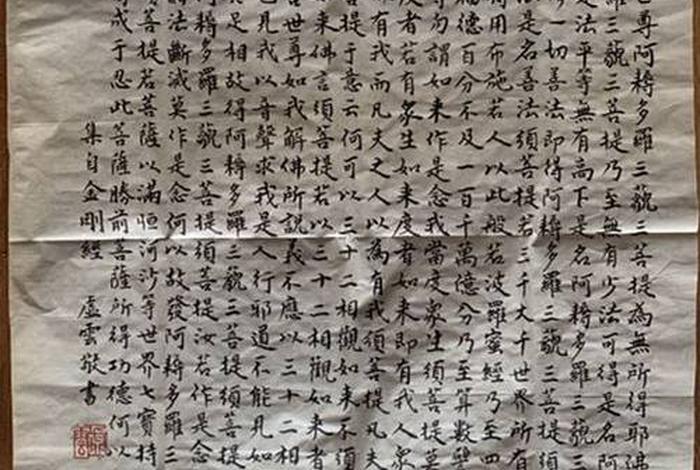 尊阿耨多羅三藐三菩提為無所得耶佛
羅三藐三菩提乃至無有少法可得是名阿
是法平等無有高下是名阿耨多羅三藐三
一切善法即得阿耨多羅三藐三菩提須
法是名善法須菩提若三千大千世界所有
用布施若人以此般若波羅蜜經乃至四
福德百分不及一百千萬億分乃至算數譬
等勿謂如來作是念我當度眾生須菩提莫
度者若有眾生如來度者如來即有我人眾
有我而凡夫之人以為有我須菩提凡夫
菩提于意云何可以三十二相觀如來不須
來佛言須菩提若以三十二相觀如來者
世尊如我解佛所說義不應以三十二相
色見我以音聲求我是人行邪道不能見如
具足相故得阿耨多羅三藐三菩提須菩提
阿耨多羅三藐三菩提須菩提汝若作是念
法斷滅莫作是念何以故發阿耨多羅三
菩提若菩薩以滿恒河沙等世界七寶持
成于忍此菩薩勝前菩薩所得功德何以
集自金剛經 虛雲敬書